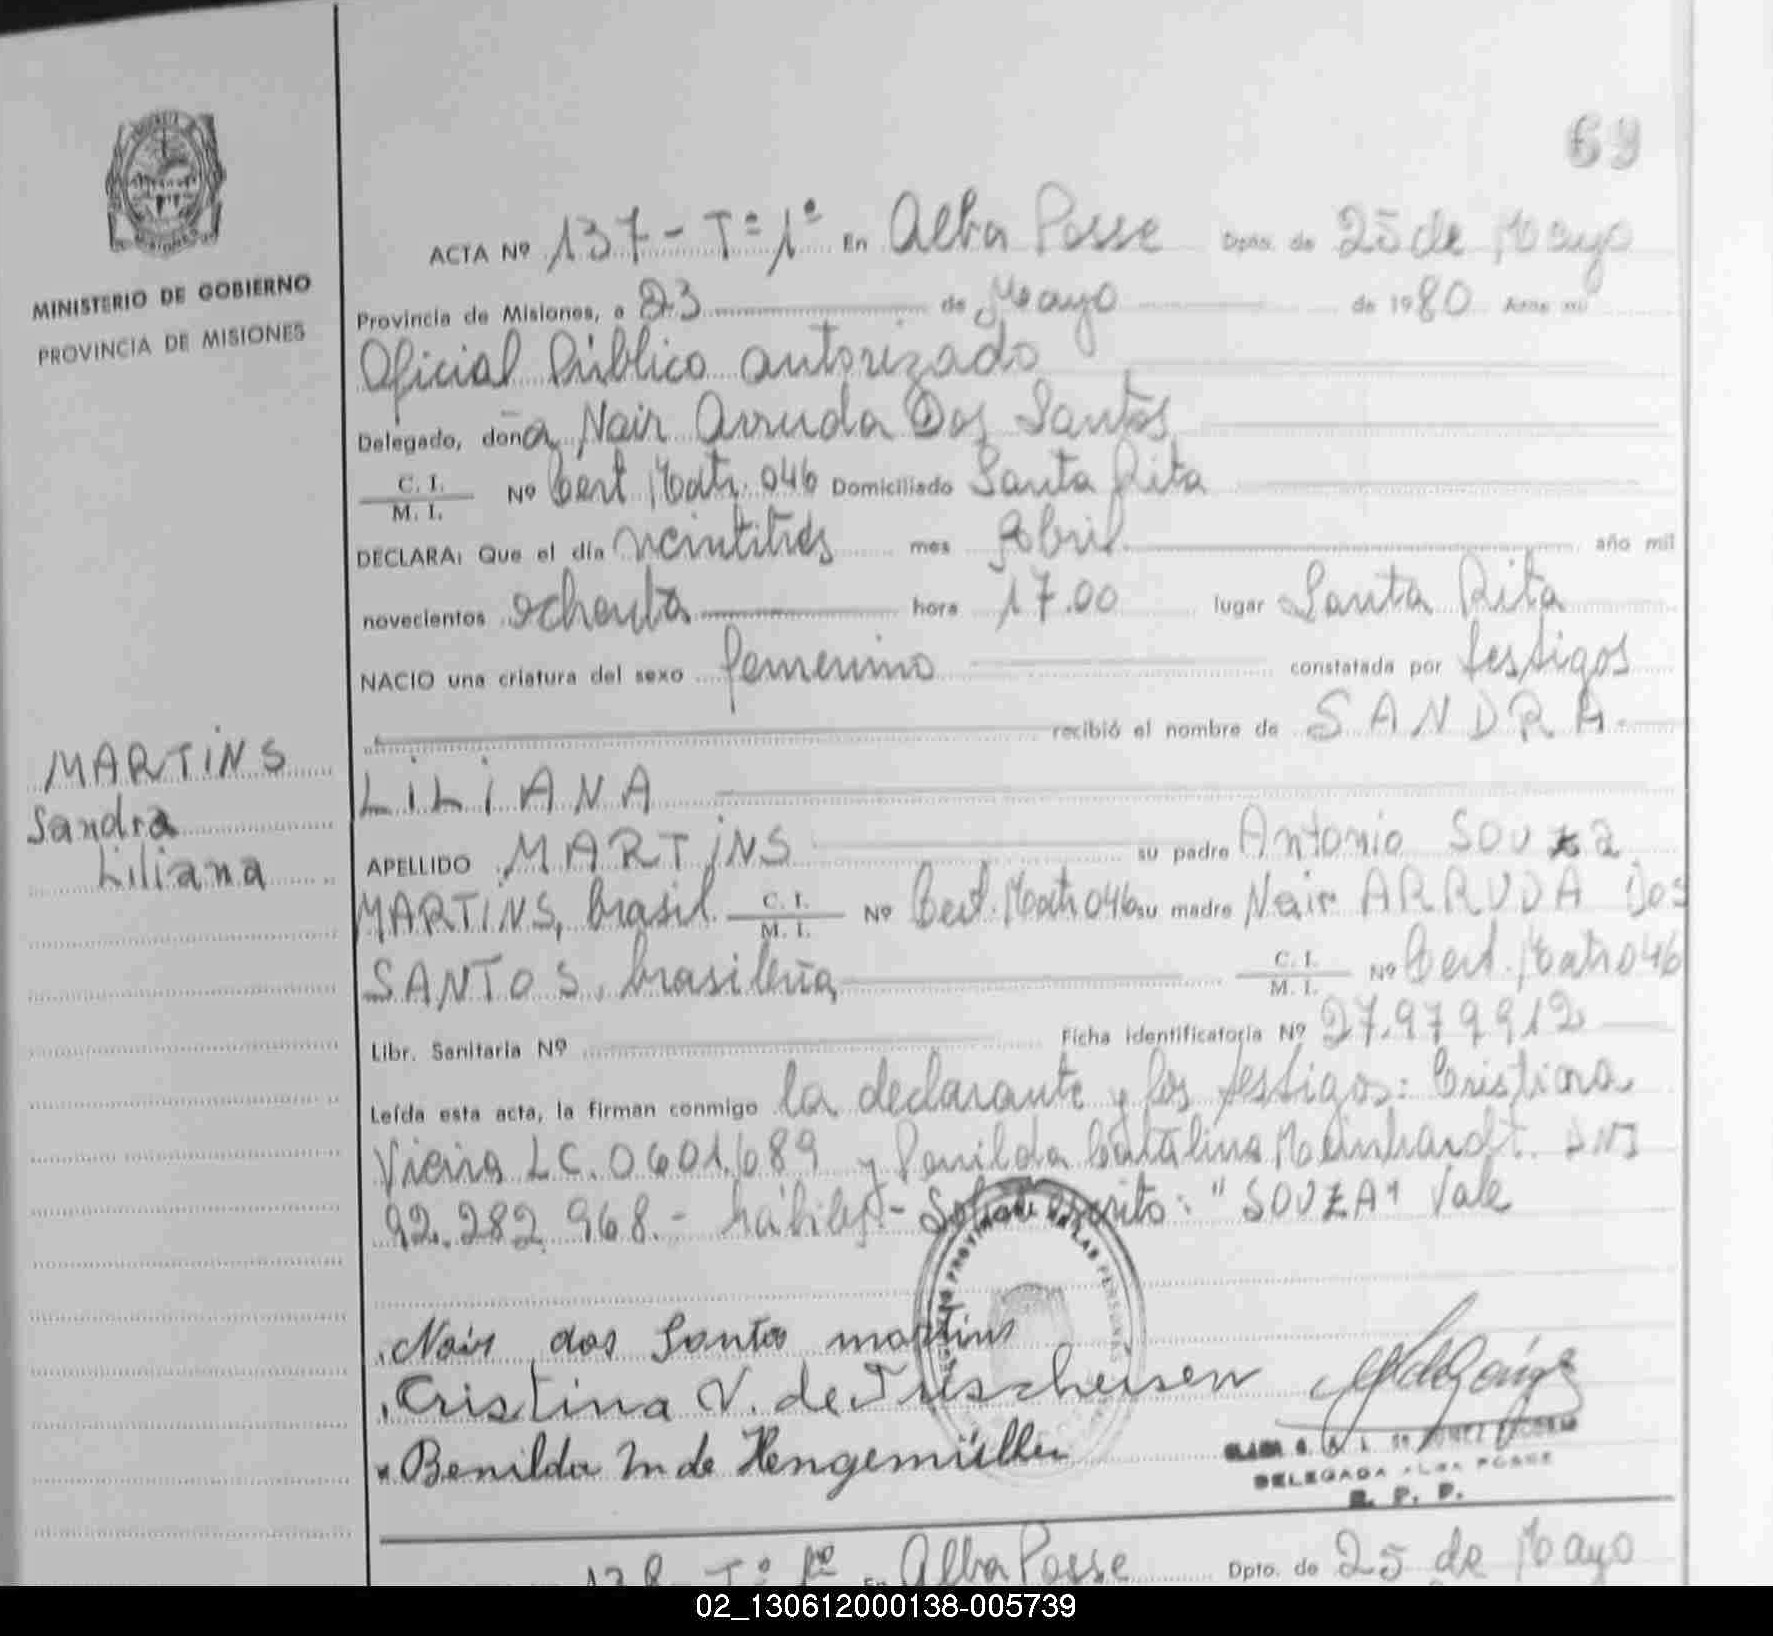 69
ACTA Nº 137 - Tº 1º En Alba Posse Dpto. de 25 de Mayo
MINISTERIO DE GOBIERNO
PROVINCIA DE MISIONES
Provincia de Misiones, a 23 de Mayo de 1980 Ante mí
Oficial Público autorizado
Delegado, doña Nair Arruda Dos Santos
C. I.
M. I. Nº Cert. Matr. 046 Domiciliado Santa Rita
DECLARA: Que el día veintitrés mes Abril año mil
novecientos ochenta hora 17.00 lugar Santa Rita
NACIO una criatura del sexo femenino constatada por testigos
recibió el nombre de SANDRA
LILIANA
MARTINS
Sandra
Liliana
APELLIDO MARTINS su padre Antonio SOUZA
MARTINS, brasil. C. I. M. I. Nº Cert. Matr. 046 su madre Nair ARRUDA DOS
SANTOS, brasileña C. I. M. I. Nº Cert. Matr. 046
Libr. Sanitaria Nº Ficha identificatoria Nº 27.979912
Leída esta acta, la firman conmigo la declarante y los testigos: Cristiana
Vieira LC. 0601.689 y Catalina Meinhardt. DNI
92.282.968.- hábiles - Sobre escrito: "SOUZA" Vale
Nair dos Santos martins
Cristina V. de
Benilda M de Hengemüller
DELEGADA ALBA POSSE
R. P. P.
138 - Tº 1º En Alba Posse Dpto. de 25 de Mayo
02_130612000138-005739